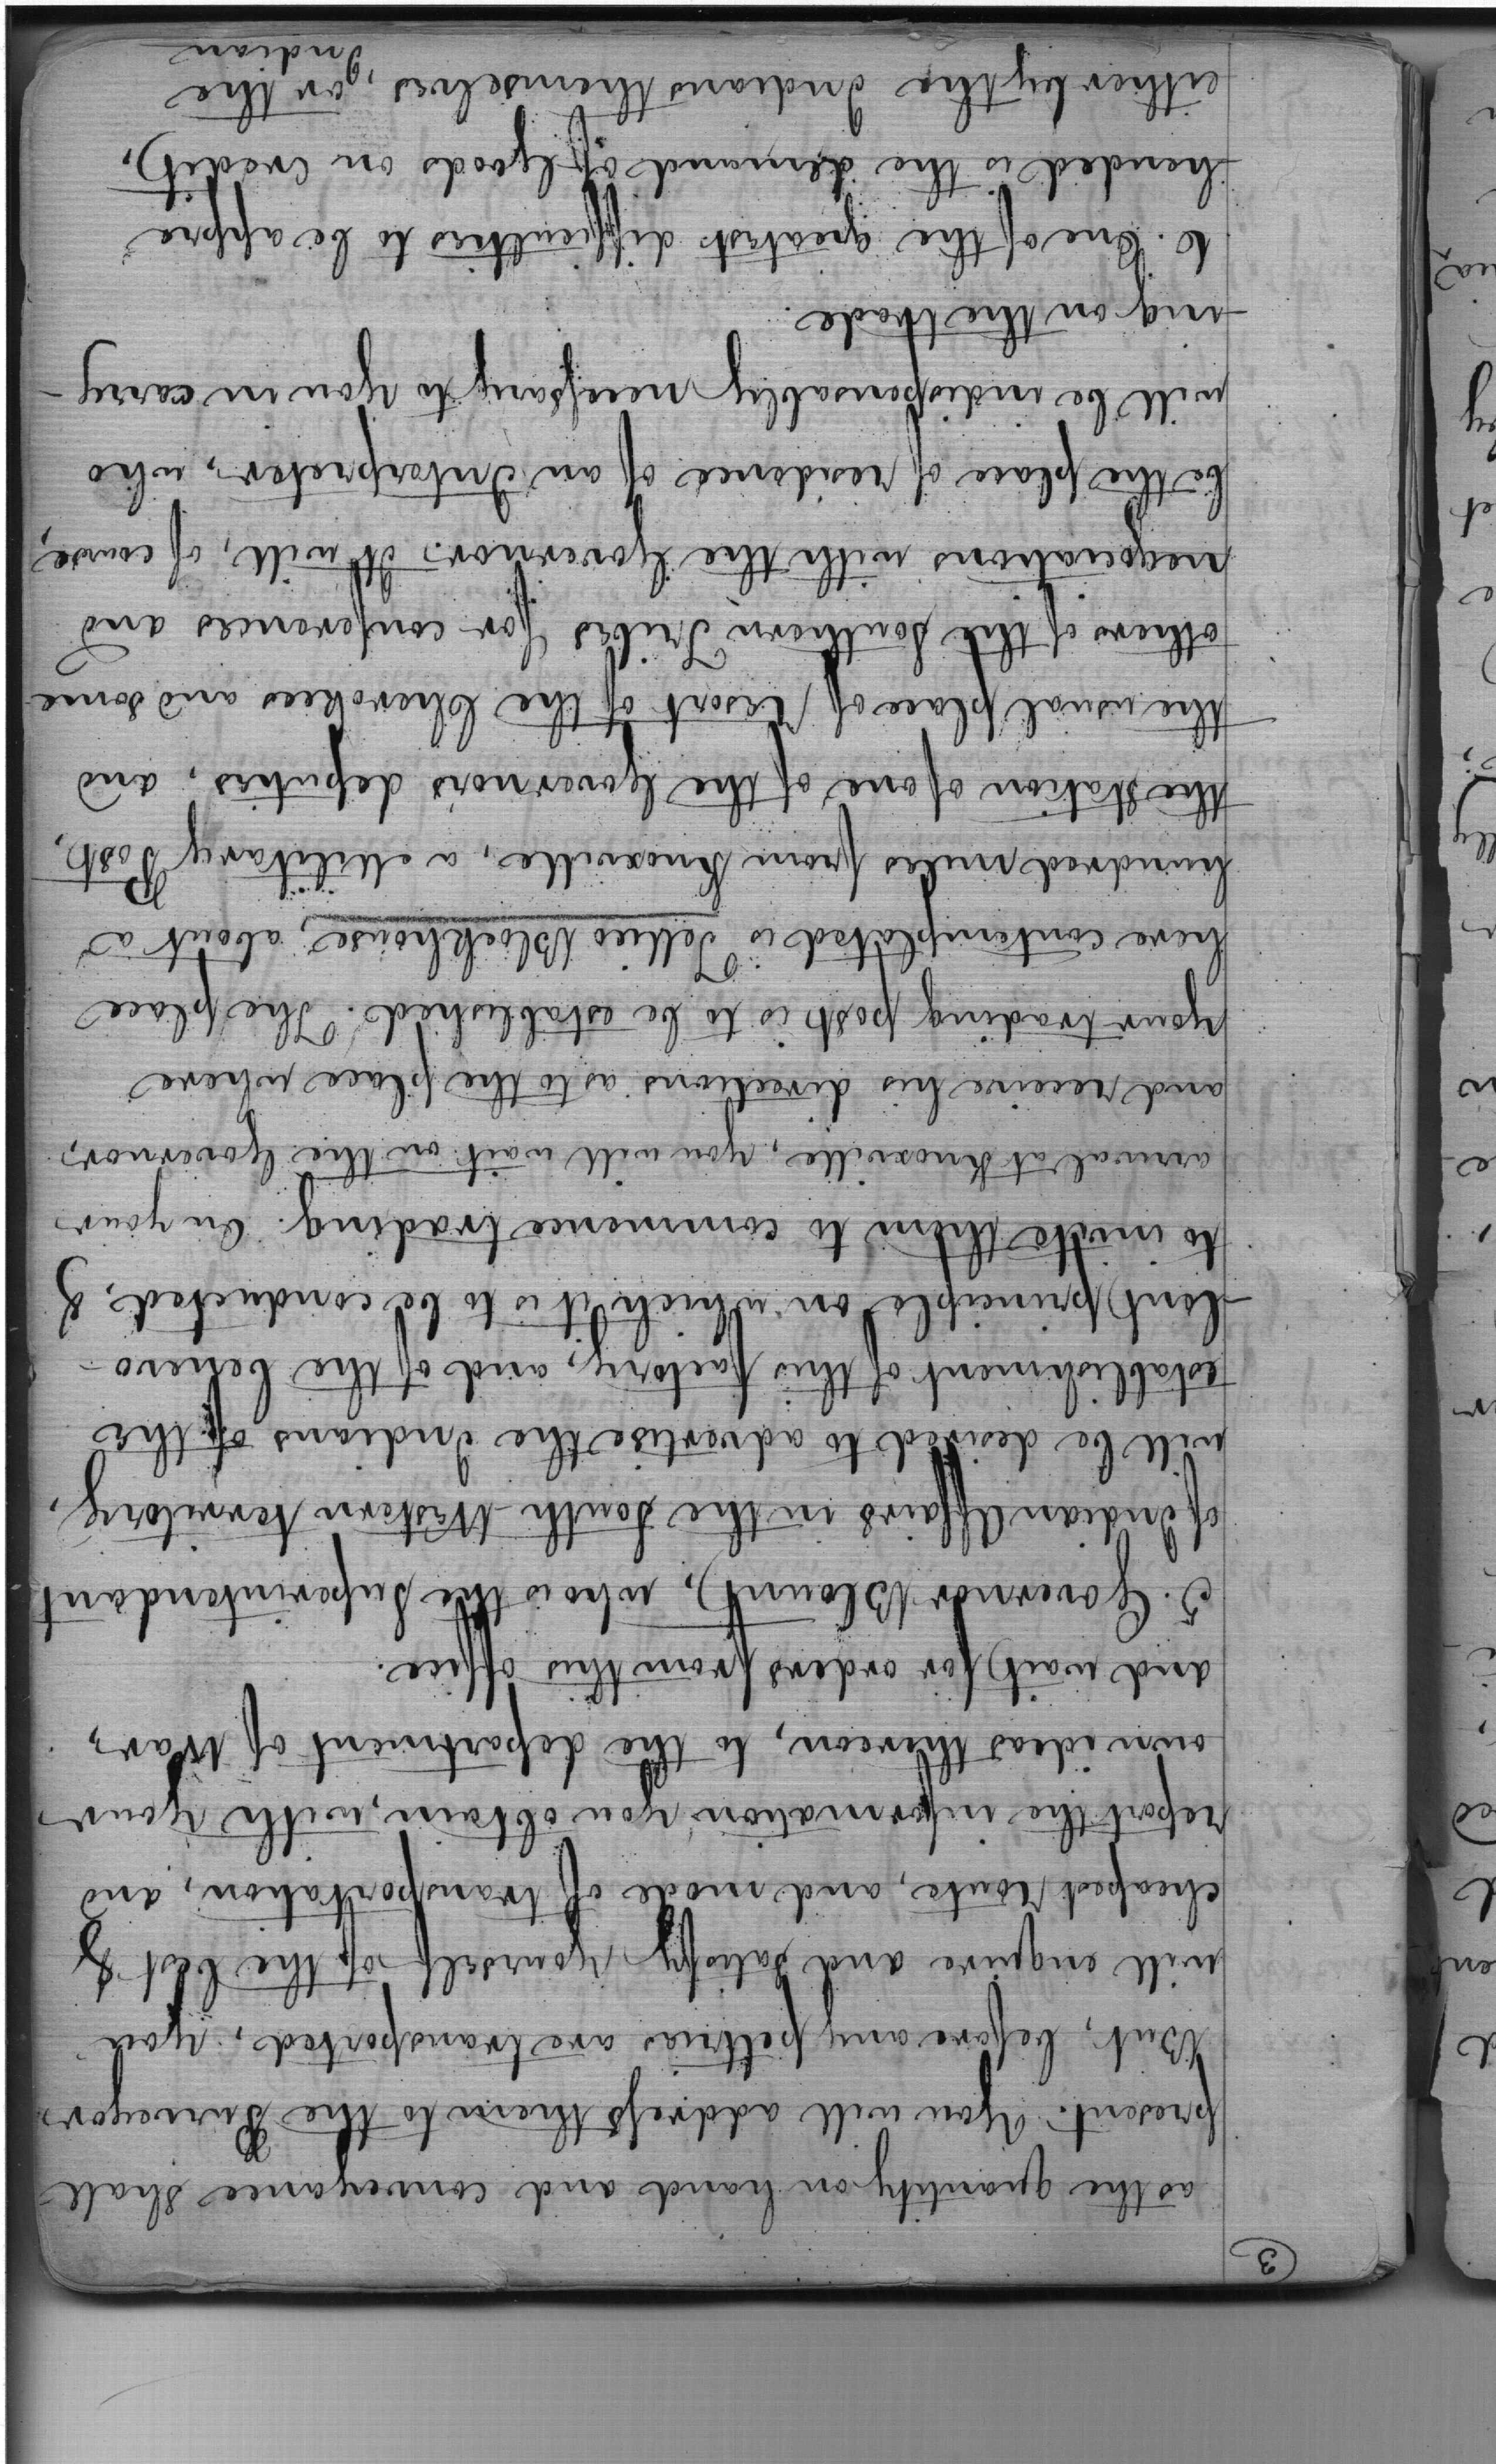 3
as the quantity on hand and conveyance shall
present. You will address them to the Purveyor.
But, before any peltries are transported, you
will enquire and satisfy yourself of the best &
cheapest route, and mode of transportation, and
report the information you obtain, with your
own ideas thereon, to the department of War,
and wait for orders from this office.
5. Governor Blount, who is the Superintendant
of Indian Affairs in the South-Western territory,
will be desired to advertise the Indians of the
establishment of this factory, and of the benevo-
lent principle on which it is to be conducted, &
to invite them to commence trading. On your
arrival at Knoxville, you will wait on the Governor,
and receive his directions as to the place where
your trading post is to be established. The place
here contemplated is Tellico Blockhouse, about a
hundred miles from Knoxville, a Military Post,
the station of one of the Governor's deputies, and
the usual place of resort of the Cherokees and some
others of the Southern Tribes for conferences and
negociations with the Governor. It will, of course,
be the place of residence of an Interpreter, who
will be indispensably necessary to you in carry-
ing on the trade.
6. One of the greatest difficulties to be appre
hended is the demand of goods on credit,
either by the Indians themselves, or the
Indian